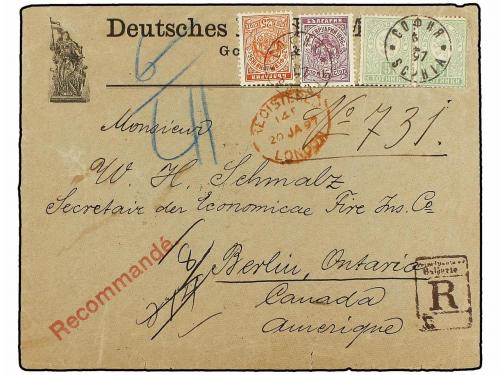 Deutsches
БЪЛГАРИЯ
СОФИЯ
97
SOPHIA
6/41
REGISTERED
20 JA 97
LONDON
No 731.
Monsieur
W. H. Schmalz
Secretair der Economicae Fire Ins. Co
Recommandé
Berlin, Ontario
Canada
Amerique
Bulgarie
R